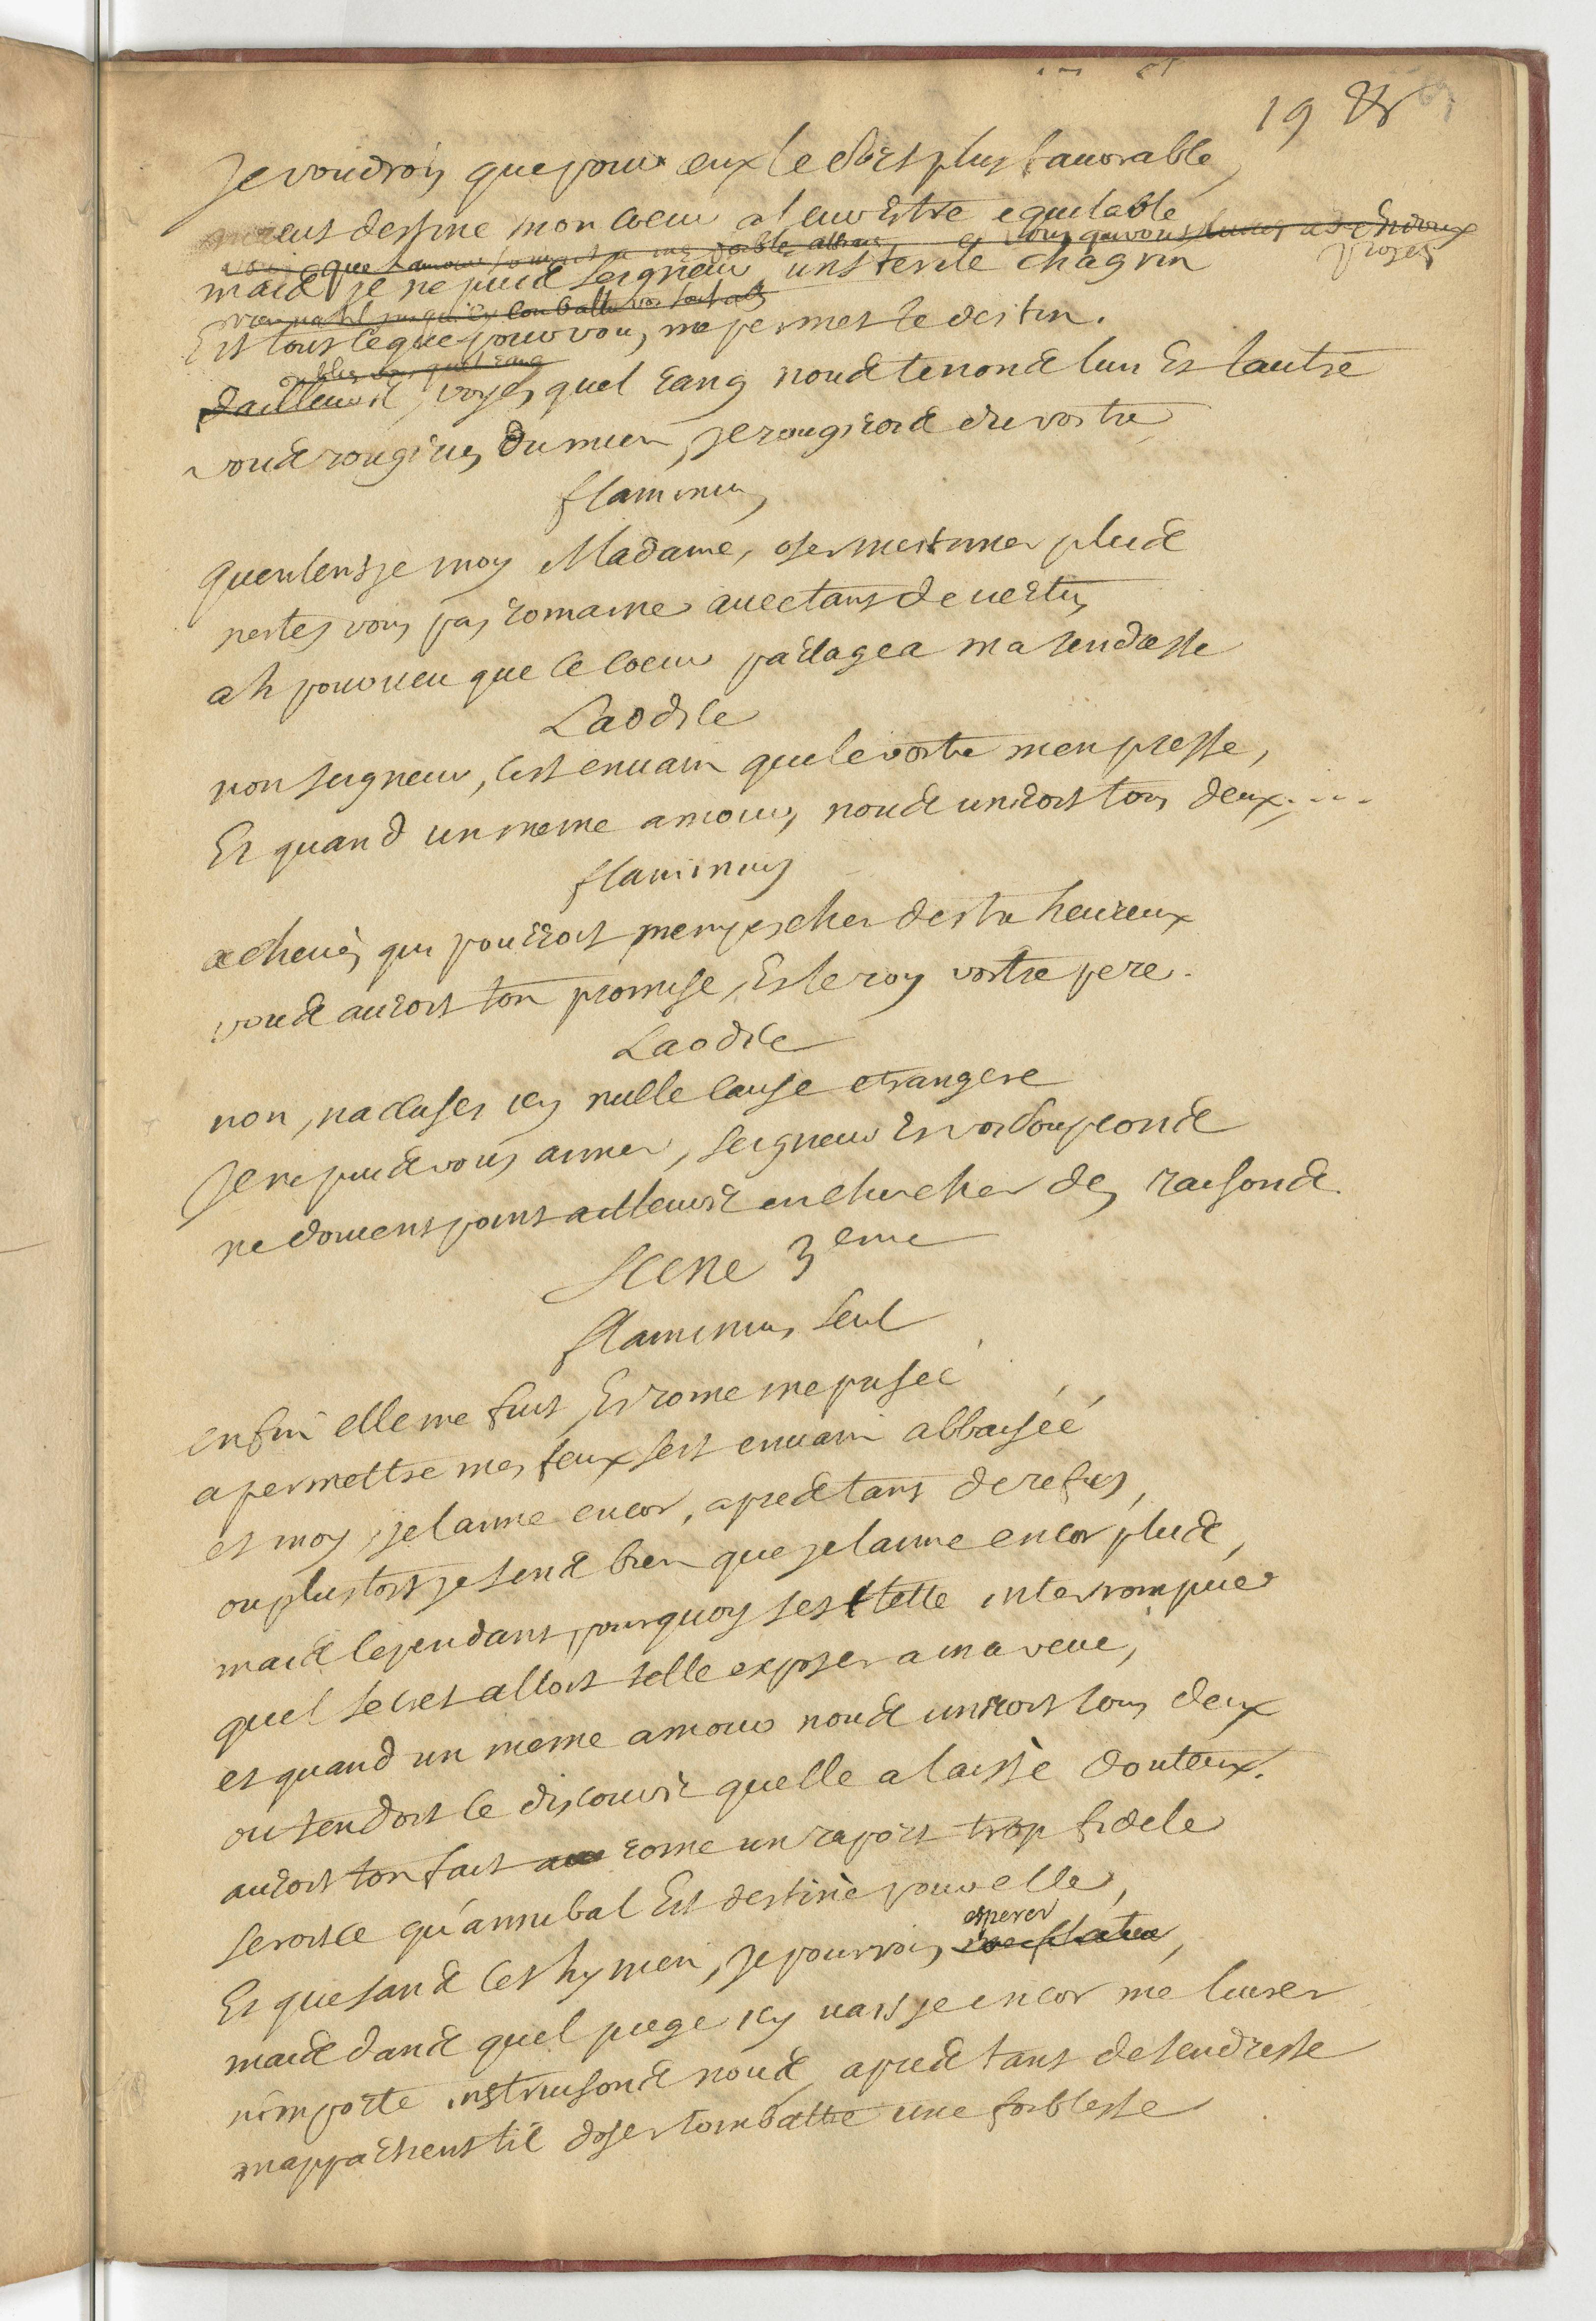 19
Je voudrois que pour eux le sort plus favorable
eut destiné mon coeur a leur estre equitable
mais je ne puis seigneur, un sterile chagrin
Est tout ce que pour vous, me permet le destin.
dailleurs, voyes quel rang nous tenons lun Et lautre
vous rougiries du mien, Je rougirois du vostre
flaminius
quentensje moy Madame, oser mestimer plus
nestes vous pas romaine avec tant de vertus
ah pourveu que ce coeur partagea ma tendresse
Laodice
non seigneur, cest envain que le vostre men presse,
Et quand un meme amour, nous uniroit tous deux....
flaminius
achevés, qui pourroit mempescher destre heureux
vous auroit ton promise, Et le roy vostre pere.
Laodice
non, naccuses icy nulle cause etrangere
Je ne puis vous aimer, seigneur Et vos soupçons
ne doivent point ailleurs en chercher des raisons
Scene 3eme
flaminius seul
enfin elle me fuit, Et rome meprisée
a permettre mes feux sest envain abbaisée
et moy, je laime encor, apres tant de refus,
ou plustost je sens bien que je laime encor plus,
mais cependant, pourquoy sest telle interrompue
quel secret alloit telle exposer a ma veue,
et quand un meme amour nous uniroit tous deux
ou tendoit ce discours quelle a laissé douteux.
auroit ton fait a rome un raport trop fidele
seroit ce qu'annibal Est destiné pour elle,
esperer
Et que sans cet hymen, Je pourrois,
mais dans quel piege icy vais je encor me livrer
nimporte instruisons nous, apres tant de tendresse
mappartient til doser combattre une foiblesse